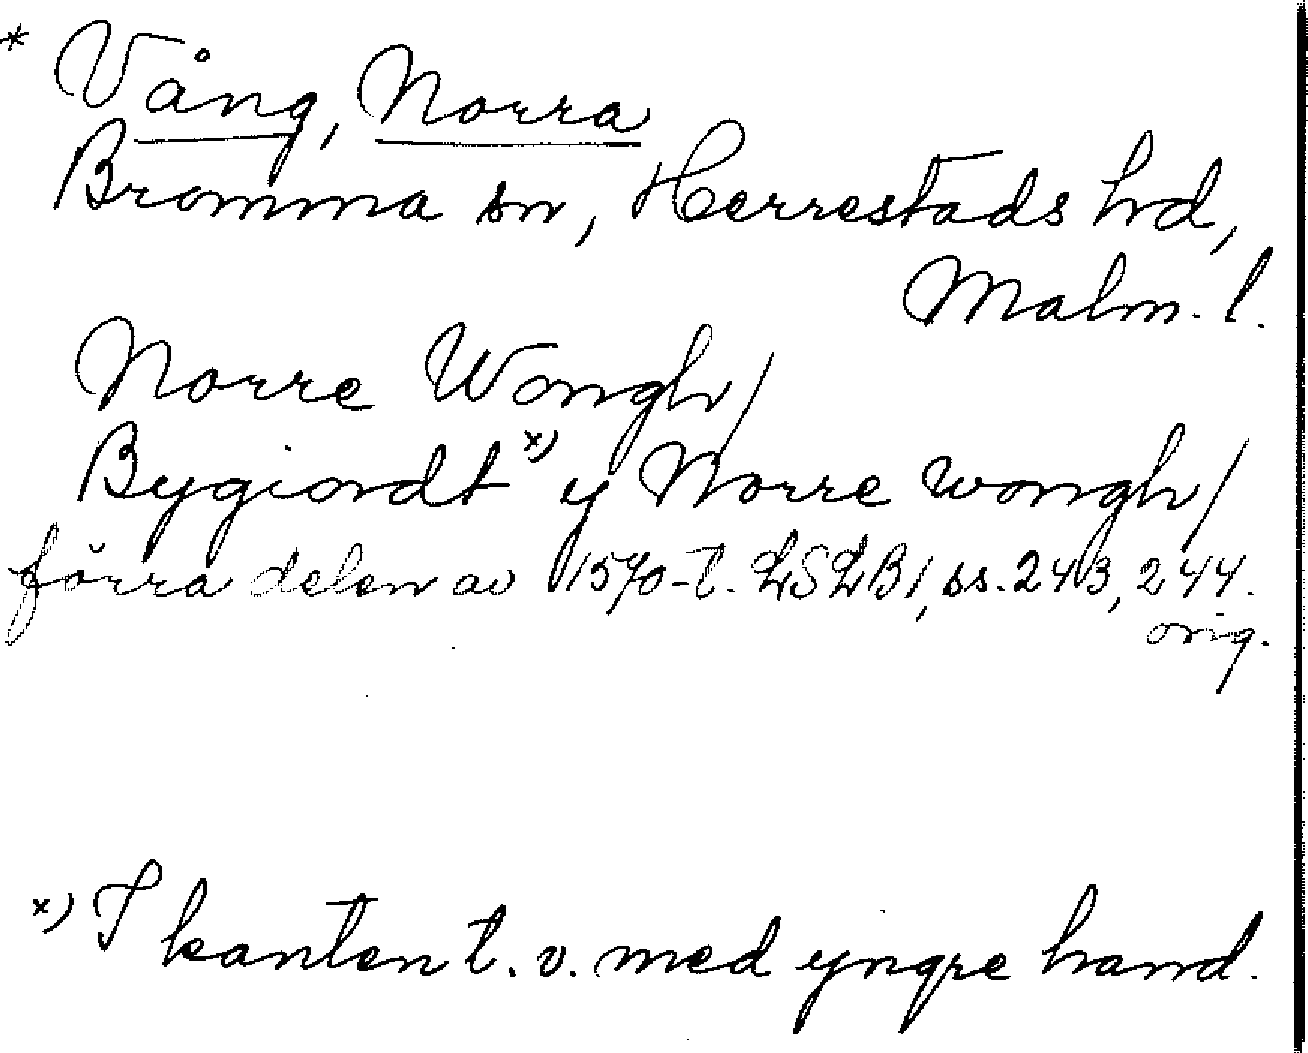 * Vång, Norra
Bromma sn, Herrestads hd,
Malm. l.
Norre Wongh/
Bygiordt x) y Norre wongh/
förra delen av 1570-t. LSLB1, ss. 243, 244.
orig.
x) I kanten t. v. med yngre hand.